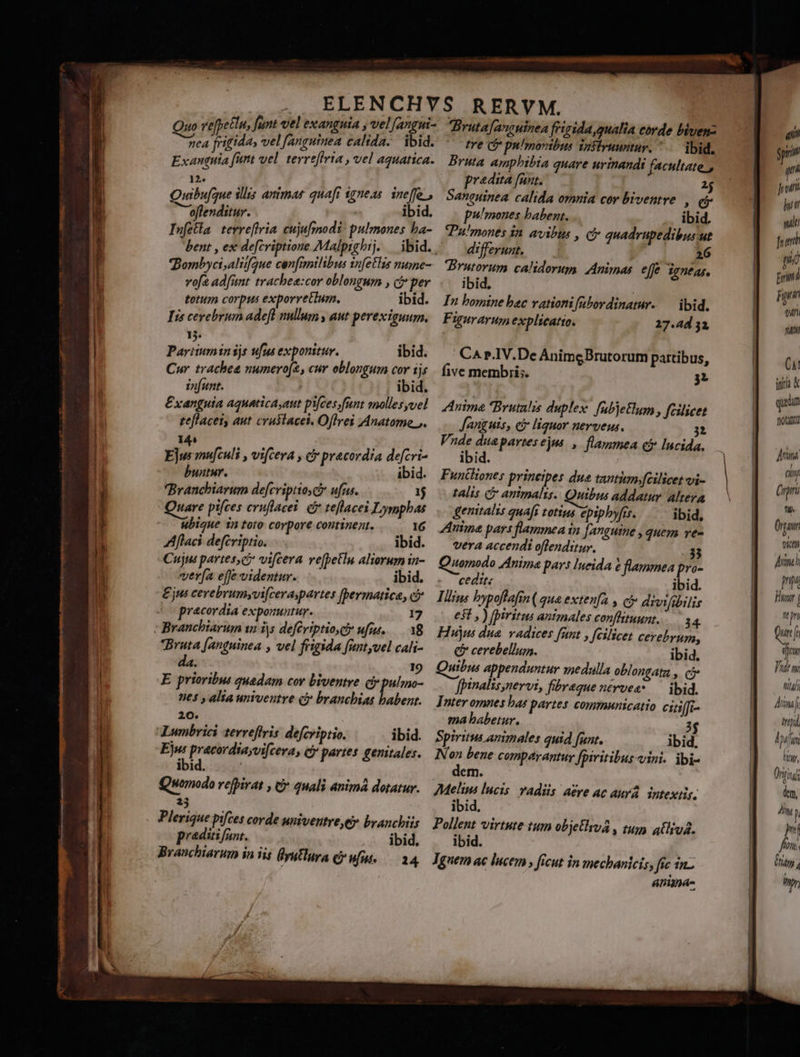 ELENCHVS RERVM.
Quo respectu, sunt vel exanguia, vel sangui-
nea frigida, vel sanguinea calida. ibid.
Exanguia sunt vel terrestria, vel aquatica.
12.
Quibusque illis animas quasi igneas inesse,
ostenditur. ibid.
Insecta terrestria cujusmodi pulmones ha-
bent, ex descriptione Malpighij. ibid.
Bombyci, aliisque consimilibus insectis nume-
rosæ adsunt tracheæ: cor oblongum, & per
totum corpus exporrectum. ibid.
Iis cerebrum adest nullum, aut perexiguum.
13.
Partium in ijs usus exponitur. ibid.
Cur tracheæ numerosæ, cur oblongum cor ijs
insunt. ibid.
Exanguia aquatica, aut pisces, sunt molles, vel
testacei, aut crustacei. Ostrei Anatome.
14.
Ejus musculi, viscera, & præcordia descri-
buntur. ibid.
Branchiarum descriptio, & usus. 15
Quare pisces crustacei & testacei Lymphas
ubique in toto corpore continent. 16
Astaci descriptio. ibid.
Cujus partes, & viscera respectu aliorum in-
versa esse videntur. ibid.
Ejus cerebrum, viscera, partes spermaticæ, &
præcordia exponuntur. 17
Branchiarum in ijs descriptio, & usus. 18
Bruta sanguinea, vel frigida sunt, vel cali-
da. 19
E prioribus quædam cor biventre & pulmo-
nes, alia univentre & branchias habent.
20.
Lumbrici terrestris descriptio. ibid.
Ejus præcordia, viscera, & partes genitales.
ibid.
Quomodo respirat, & quali animâ dotatur.
23
Plerique pisces corde univentre, & branchiis
præditi sunt. ibid.
Branchiarum in iis structura & usus. 24
Bruta sanguinea frigida, qualia corde biven-
tre & pulmonibus instruuntur. ibid.
Bruta amphibia quare urinandi facultate
prædita sunt. 25
Sanguinea calida omnia cor biventre, &
pulmones habent. ibid.
Pulmones in avibus, & quadrupedibus ut
differunt. 26
Brutorum calidorum Animas esse igneas.
ibid.
In homine hæc rationi subordinatur. ibid.
Figurarum explicatio. 27. ad 32
CAP. IV. De Animæ Brutorum partibus,
sive membris. 32
Animæ Brutalis duplex subjectum, scilicet
sanguis, & liquor nerveus. 32
Vnde duæ partes ejus, flammea & lucida.
ibid.
Functiones principes duæ tantùm, scilicet vi-
talis & animalis. Quibus additur altera
genitalis quasi totius epiphysis. ibid.
Animæ pars flammea in sanguine, quem re-
vera accendi ostenditur. 33
Quomodo Animæ pars lucida è flammea pro-
cedit. ibid.
Illius hypostasin (quæ extensa, & divisibilis
est,) spiritus animales constituunt. 34
Hujus duæ radices sunt, scilicet cerebrum,
& cerebellum. ibid.
Quibus appenduntur medulla oblongata, &
spinalis, nervi, fibræque nerveæ. ibid.
Inter omnes has partes communicatio citissi-
ma habetur. 35
Spiritus animales quid sunt. ibid.
Non bene comparantur spiritibus vini. ibi-
dem.
Melius lucis radiis aere ac aurâ intextis.
ibid.
Pollent virtute tum objectivâ, tum activâ.
ibid.
Ignem ac lucem, sicut in mechanicis, sic in
anima-